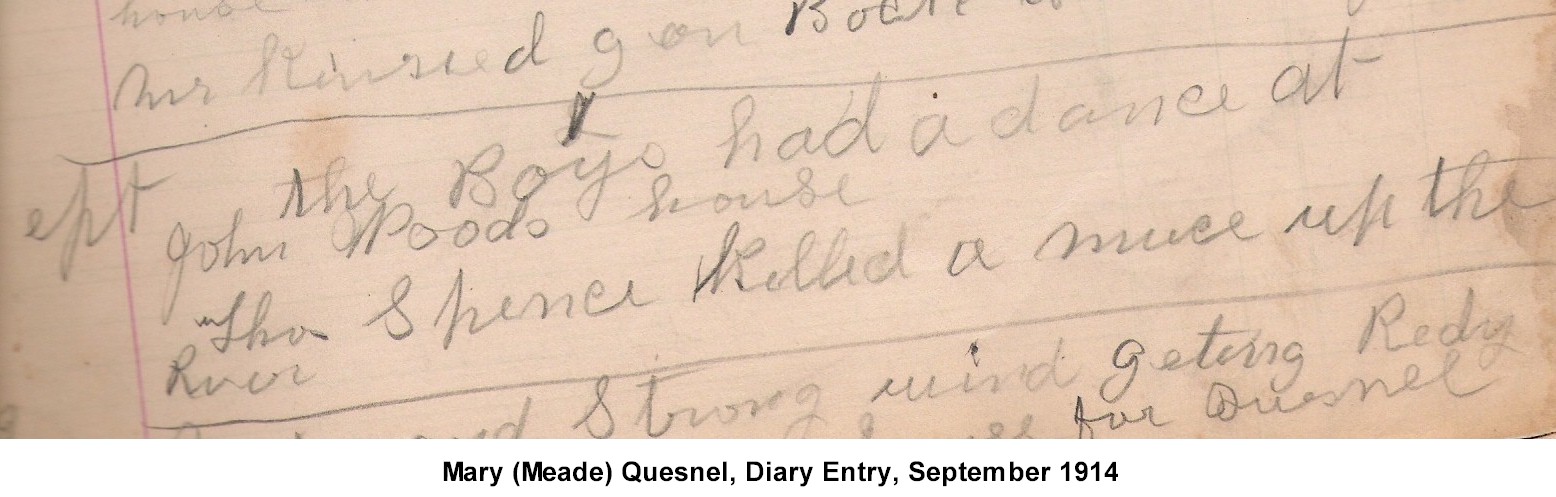 house
Mr Kinsied g on Boate
the Boys had a dance at
ept
John Woods house
Tho Spence killed a muce up the
River
and Strong wind Geting Redy
for Quesnel
Mary (Meade) Quesnel, Diary Entry, September 1914